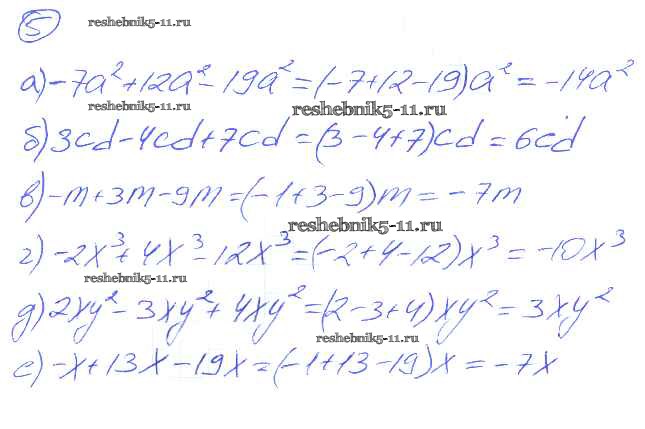 5
reshebnik5-11.ru
а) -7a² + 12a² - 19a² = (-7+12-19)a² = -14a²
reshebnik5-11.ru
reshebnik5-11.ru
б) 3cd - 4cd + 7cd = (3 - 4 + 7)cd = 6cd
в) -m + 3m - 9m = (-1 + 3 - 9)m = -7m
reshebnik5-11.ru
г) -2x³ + 4x³ - 12x³ = (-2 + 4 - 12)x³ = -10x³
reshebnik5-11.ru
д) 2xy² - 3xy² + 4xy² = (2 - 3 + 4)xy² = 3xy²
reshebnik5-11.ru
е) -x + 13x - 19x = (-1 + 13 - 19)x = -7x